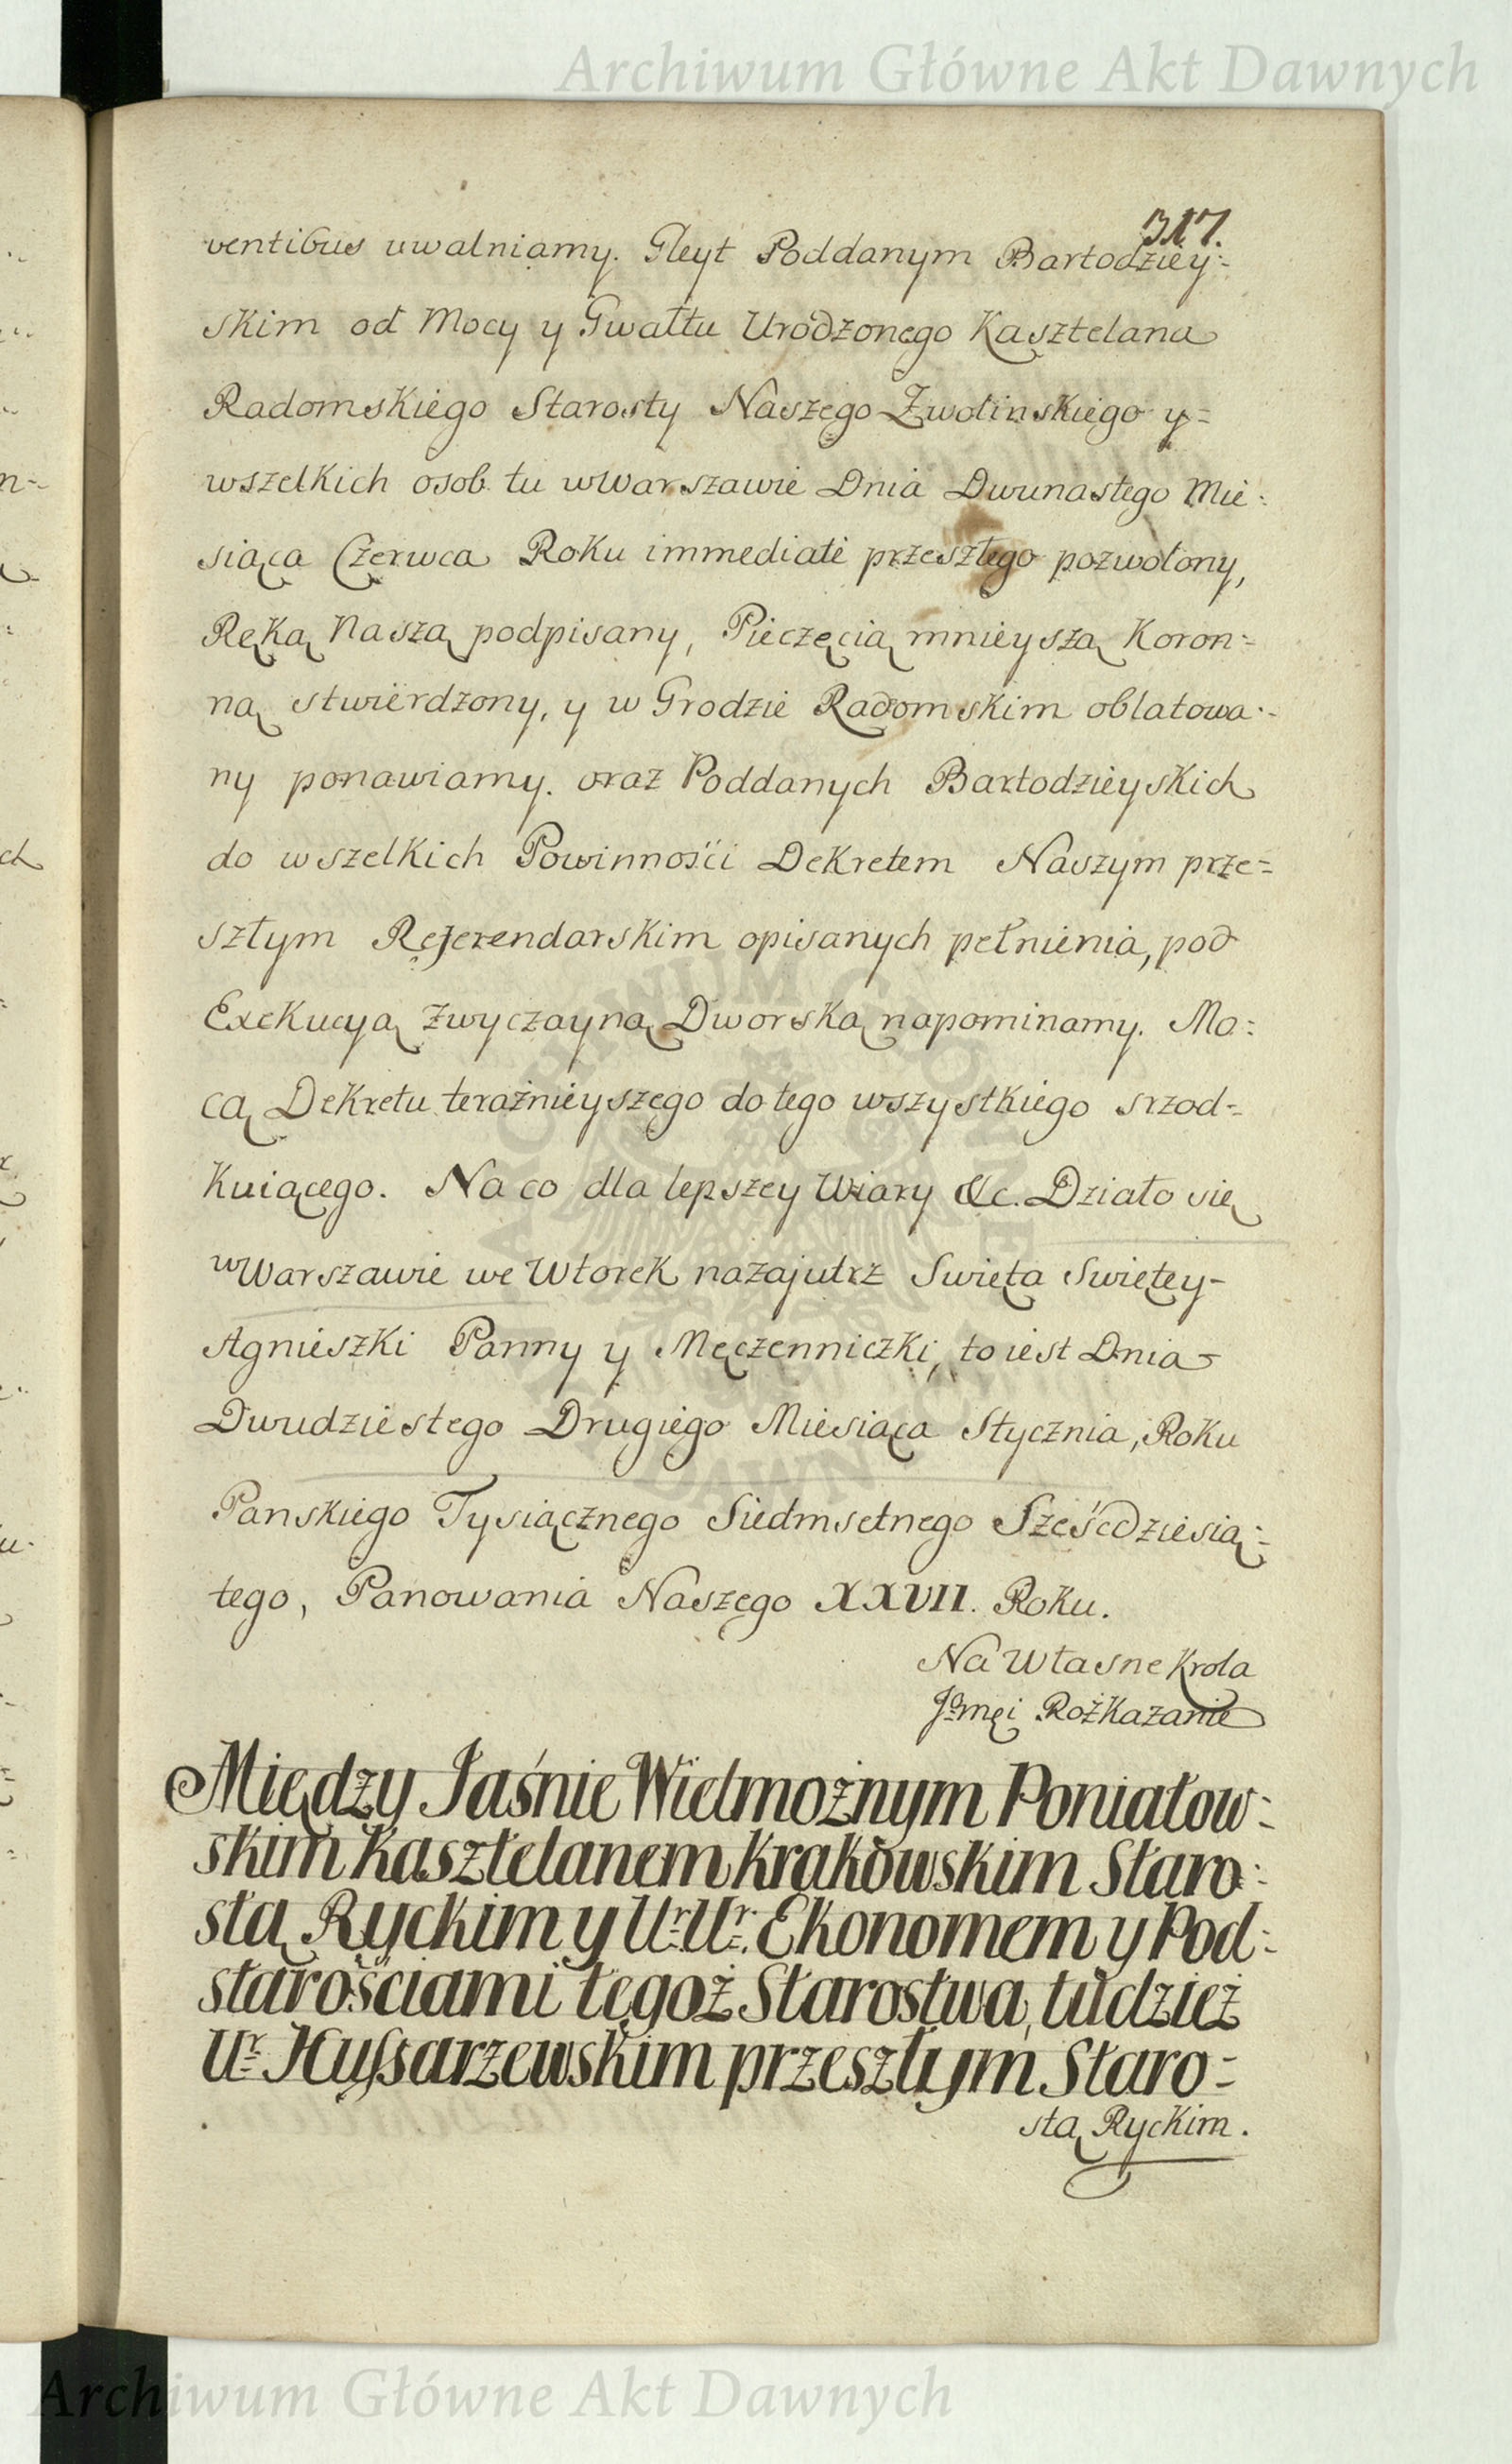 Archiwum Główne Akt Dawnych
317.
ventibus uwalniamy. Gleyt Poddanym Bartodziey-
skim od Mocy y Gwałtu Urodzonego Kasztelana
Radomskiego Starosty Naszego Zwolinskiego y=
wszelkich osob tu w Warszawie Dnia Dwunastego Mie:
siąca Czerwca Roku immediate przeszłego pozwolony,
Ręką Naszą podpisany, Pieczęcią mnieyszą Koron=
ną stwierdzony, y w Grodzie Radomskim oblatowa-
ny ponawiamy. oraz Poddanych Bartodzieyskich
do wszelkich Powinnośći Dekretem Naszym prze=
szłym Referendarskim opisanych pełnienia, pod
Exekucyą zwyczayną Dworską napominamy. Mo:
cą Dekretu teraźnieyszego do tego wszystkiego srzod=
kuiącego. Na co dla lepszey Wiary &c. Działo się
w Warszawie we Wtorek nazajutrz Swięta Swiętey-
Agnieszki Panny y Męczenniczki, to iest Dnia
Dwudziestego Drugiego Miesiąca Stycznia, Roku
Panskiego Tysiącznego Siedmsetnego Sześćdziesią=
tego, Panowania Naszego XXVII. Roku.
Na Własne Krola
Jomęi Rozkazanie
Między Jaśnie Wielmożnym Poniatow=
skim Kasztelanem Krakowskim Staro:
stą Ryckim y Ur. Ur. Ekonomem y Pod=
starościami tegoż Starostwa, tudzież
Ur Hussarzewskim przeszłym Staro=
stą Ryckim.
Archiwum Główne Akt Dawnych